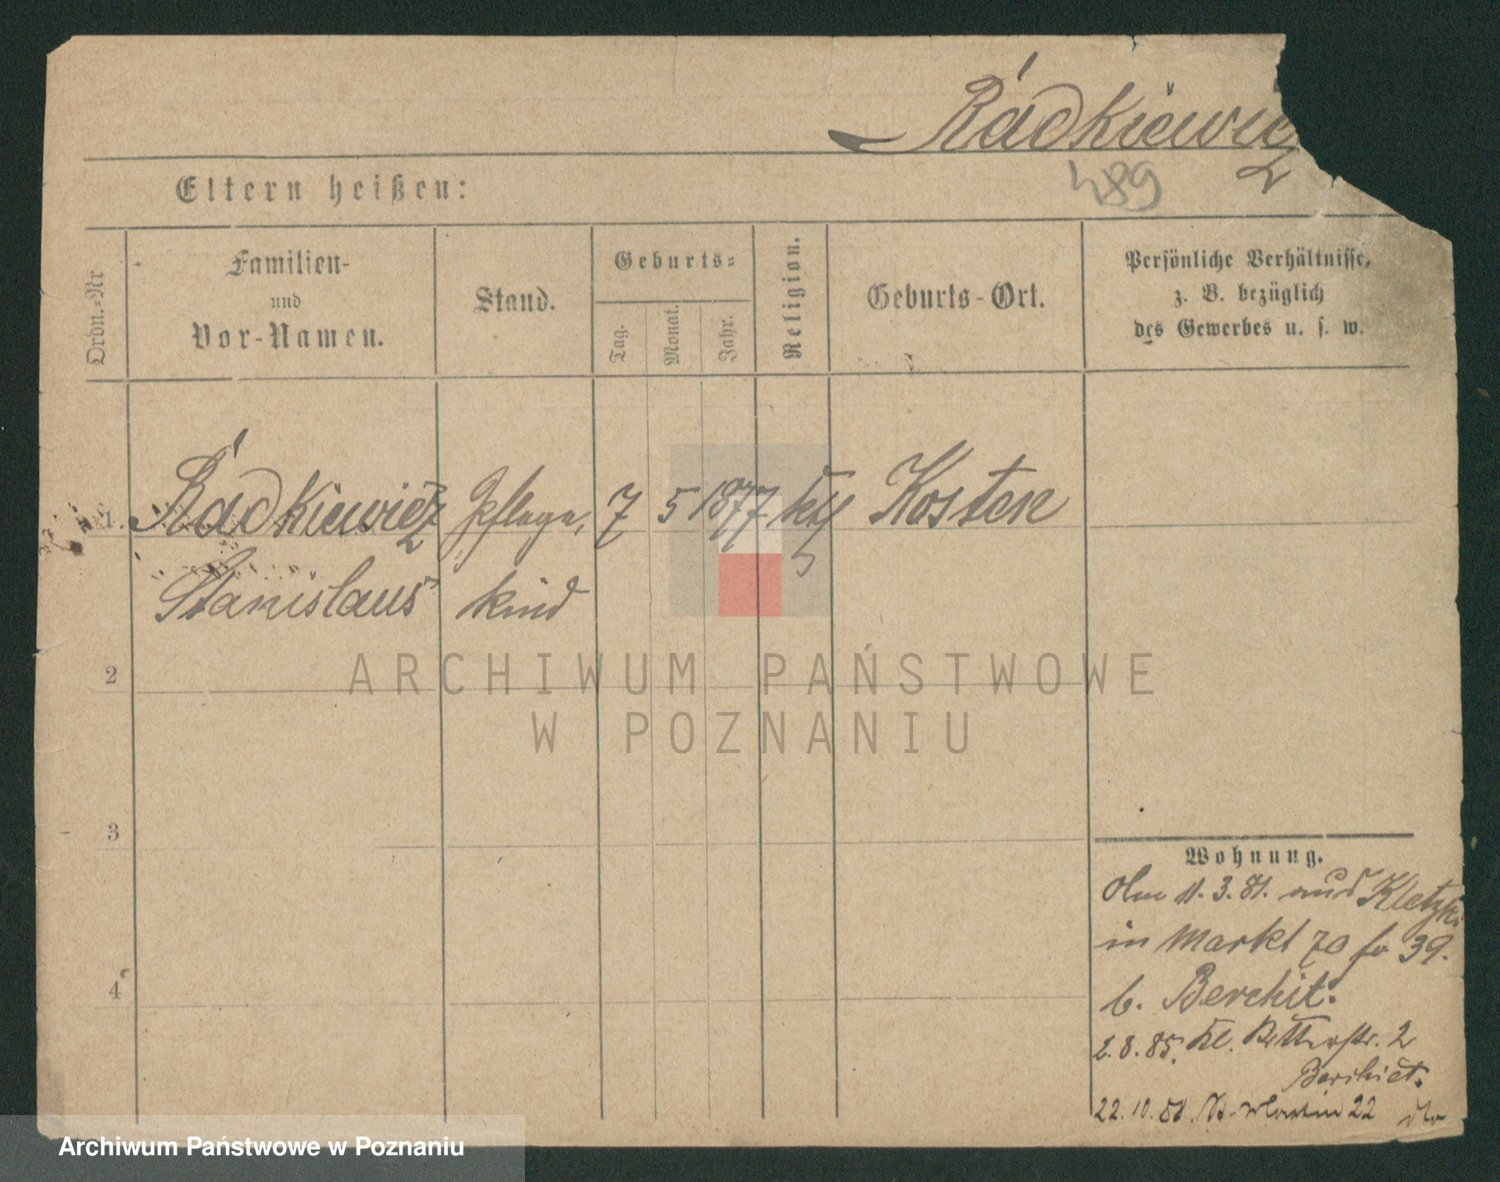 Radkiewicz
489
Eltern heißen:
Ordn.-Nr
Familien-
und
Vor-Namen.
Stand.
Geburts-
Tag.
Monat.
Jahr.
Religion.
Geburts-Ort.
Persönliche Verhältnisse,
z. B. bezüglich
des Gewerbes u. s. w.
1. Radkiewicz Pflege- 7 5 1877 kth Kosten
Stanislaus kind
2
3
4
Wohnung.
11.3.81. aus Kletzko
in Markt 70 39.
b. Berchit.
2.8.85. Kl. Ritterstr. 2
Berchiet.
22.10. 22 dto
ARCHIWUM PAŃSTWOWE
W POZNANIU
Archiwum Państwowe w Poznaniu